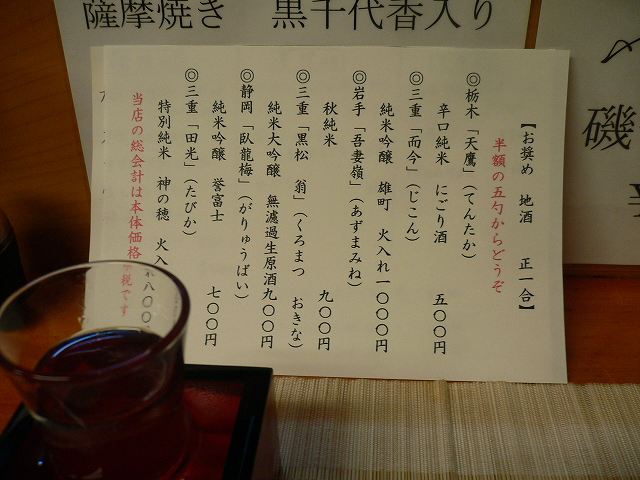 薩摩焼き　黒千代香入り
〆
磯
【お奨め　地酒　正一合】
半額の五勺からどうぞ
◎栃木「天鷹」（てんたか）
辛口純米　にごり酒　五〇〇円
◎三重「而今」（じこん）
純米吟醸　雄町　火入れ一〇〇〇円
◎岩手「吾妻嶺」（あずまみね）
秋純米　九〇〇円
◎三重「黒松　翁」（くろまつ　おきな）
純米大吟醸　無濾過生原酒九〇〇円
◎静岡「臥龍梅」（がりゅうばい）
純米吟醸　誉富士　七〇〇円
◎三重「田光」（たびか）
特別純米　神の穂　火入れ八〇〇
当店の総会計は本体価格　税です